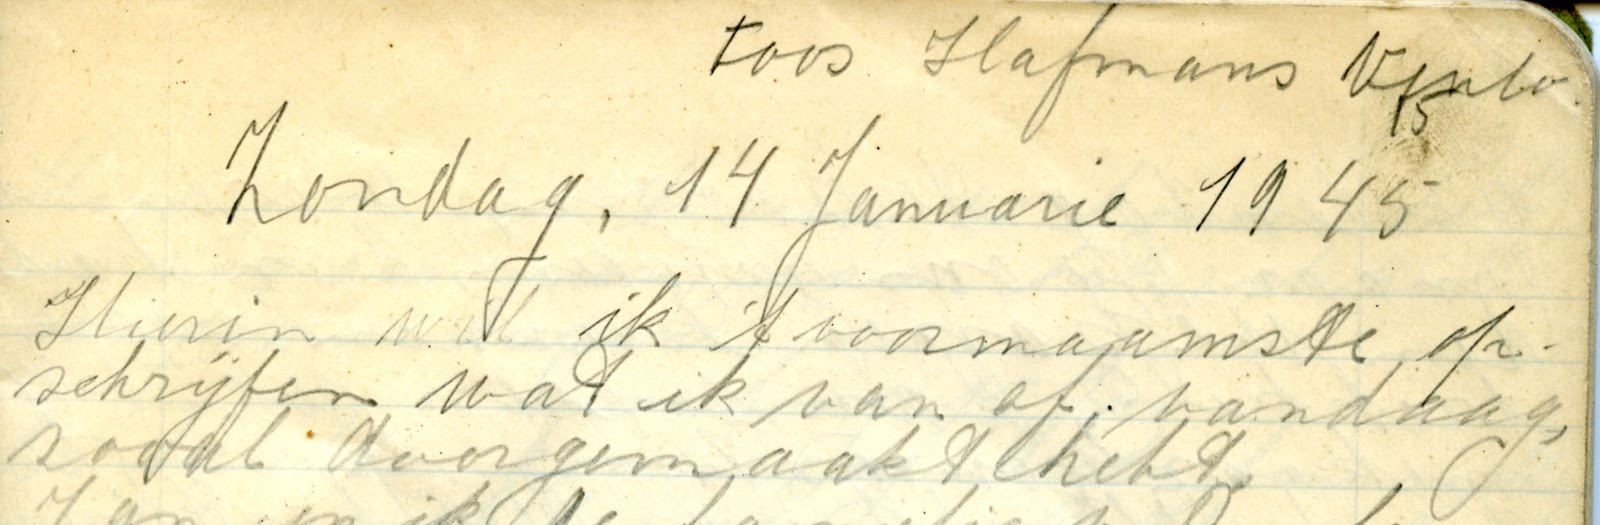 Toos Hafmans Venlo.
15
Zondag, 14 Januarie 1945
Hierin wil ik 't voornaamste op-
schrijfen wat ik van af vandaag,
zooal doorgemaakt hebt.
Jan en ik